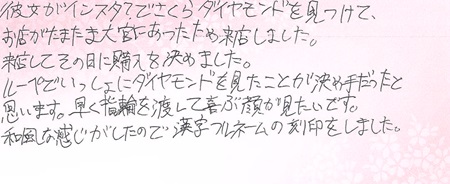 彼女がインスタでさくらダイヤモンドを見つけて、
お店がたまたま大宮にあったため来店しました。
来店してその日に購入を決めました。
ループでいっしょにダイヤモンドを見たことが決め手だったと
思います。早く指輪を渡して喜ぶ顔が見たいです。
和風な感じがしたので漢字フルネームの刻印をしました。